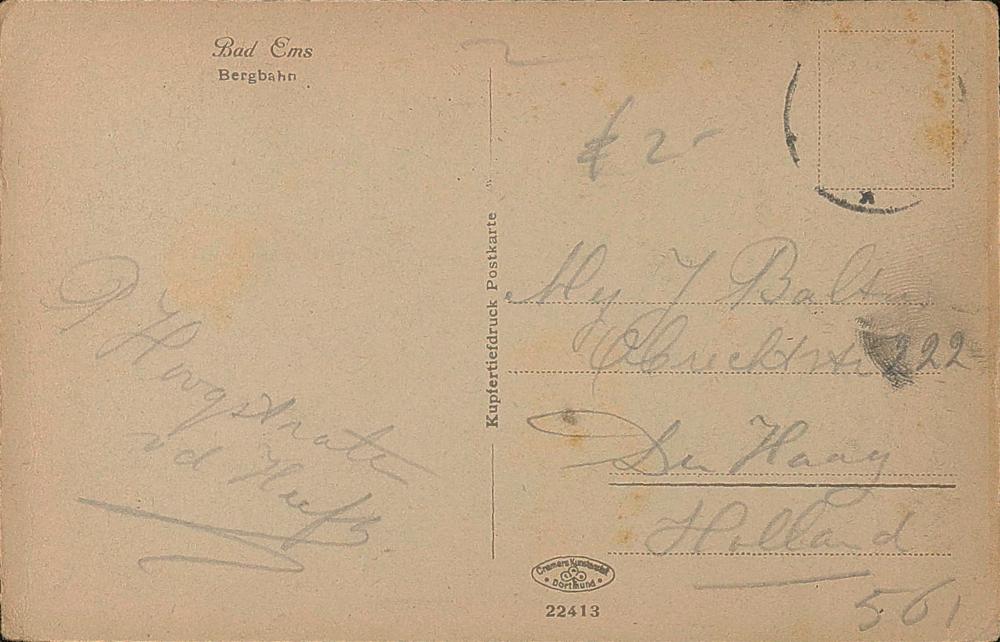 Bad Ems
Bergbahn
P Hoogstraten
vd Heeft
Kupfertiefdruck Postkarte
2-
J Balsa
Obrechtstr 222
Den Haag
Holland
Cramers Kunstanstalt
Dortmund
22413
561